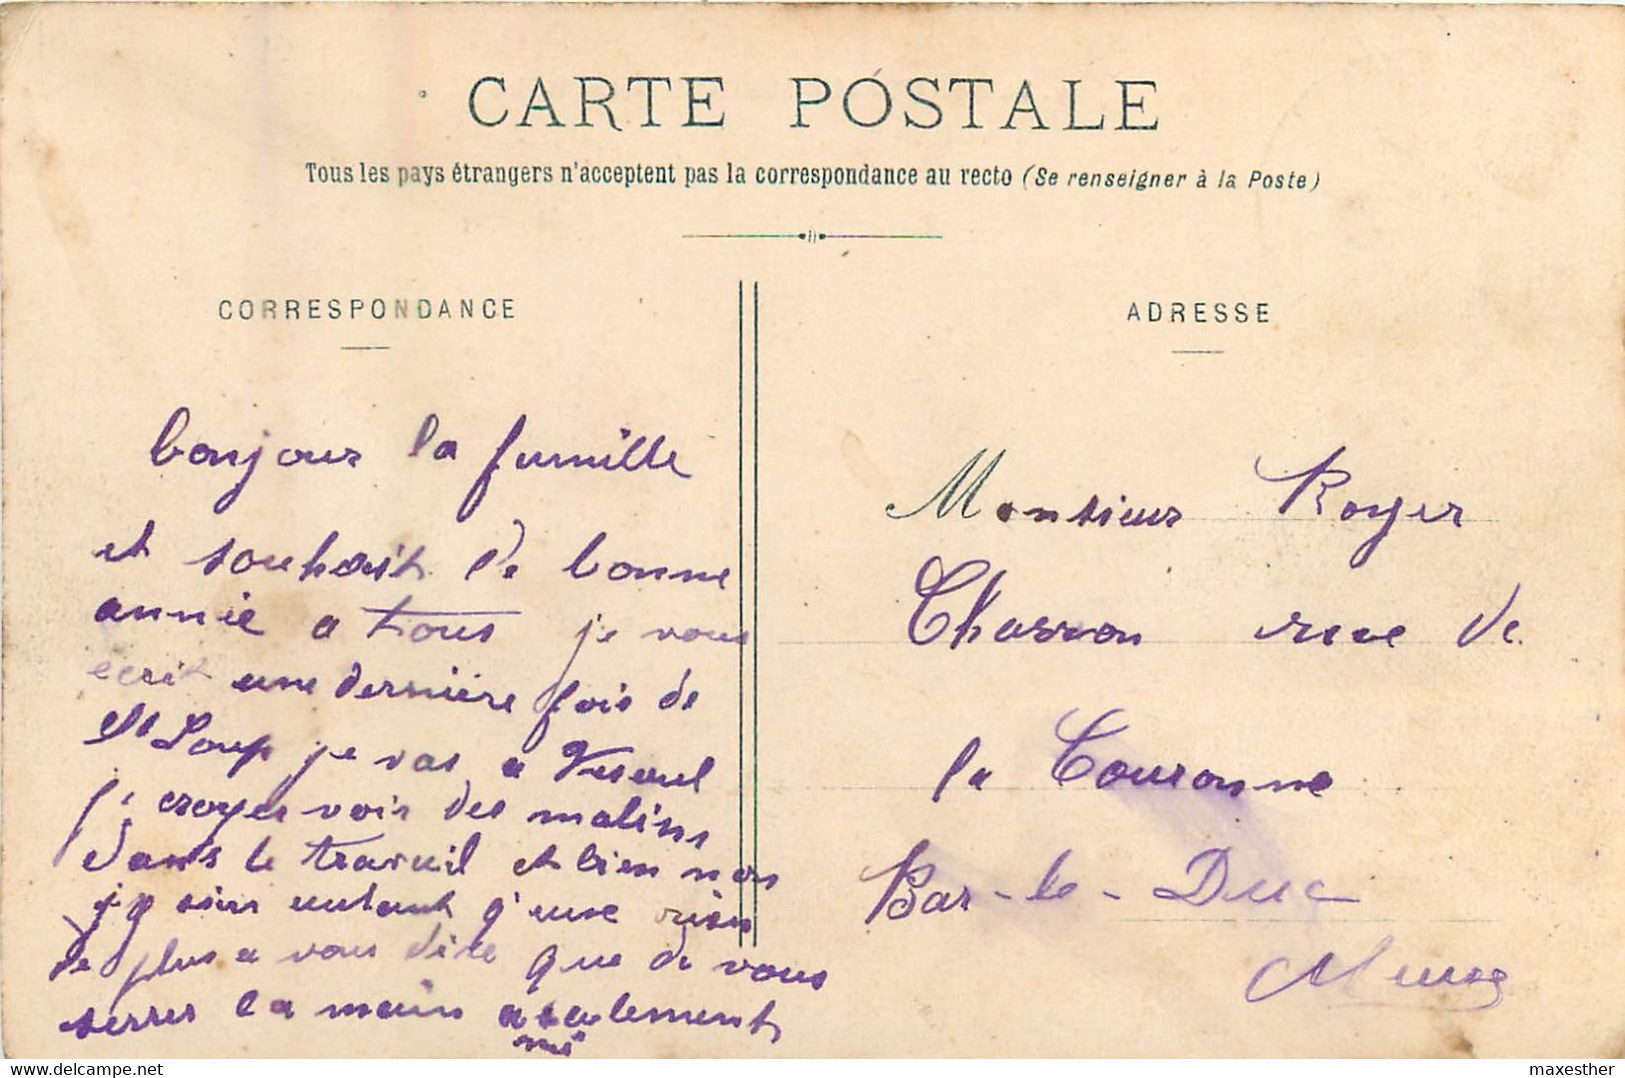 CARTE POSTALE
Tous les pays étrangers n'acceptent pas la correspondance au recto (Se renseigner à la Poste)
CORRESPONDANCE
bonjour la famille
et souhait de bonne
annie a tous je vous
ecrit une dernière fois de
St Loup je vas a Vesoul
croyer voir des malins
dans le travail et bien non
autant q'une rien
de plus a vous dire que de vous
serrer la main
ADRESSE
Monsieur Royer
Charron rue de
la Couronne
Bar-le-Duc
Meuse
delcampe.net
maxesther